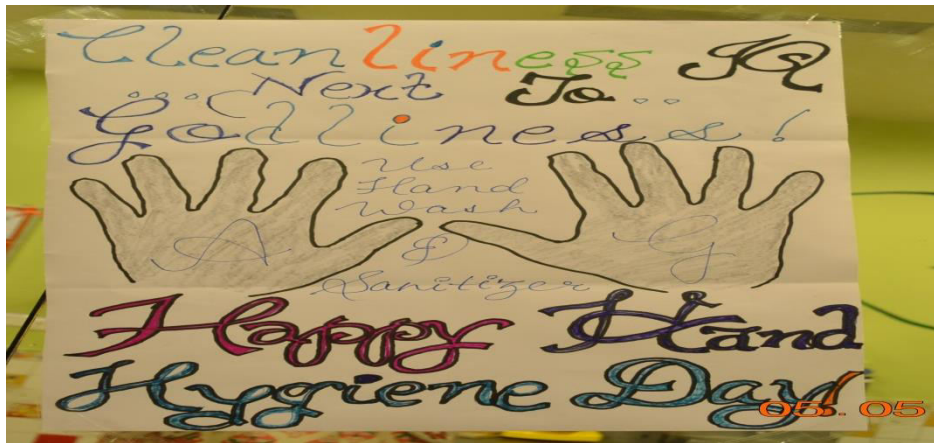 Cleanliness Is
Next To
Godliness!
Use
Hand
Wash
A & G
Sanitizer
Happy Hand
Hygiene Day!
05.. 05